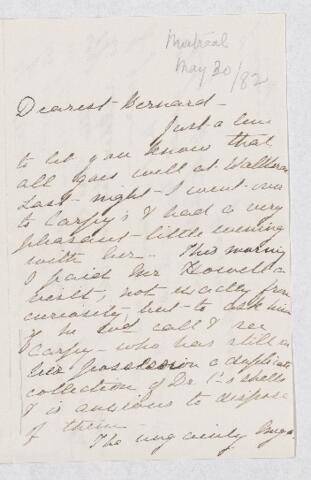 Montreal
May 30/82
Dearest Bernard -
Just a line
to let you know that
all goes well at
Last night I went over
to Carpy's & had a very
pleasant little evening
with her - This morning
I paid Mr Howell a
visit, not exactly from
curiosity but to ask him
if he call & see
Carpy - who has still in
her possession a duplicate
collection of Dr C's shells
& is anxious to dispose
of them -
The